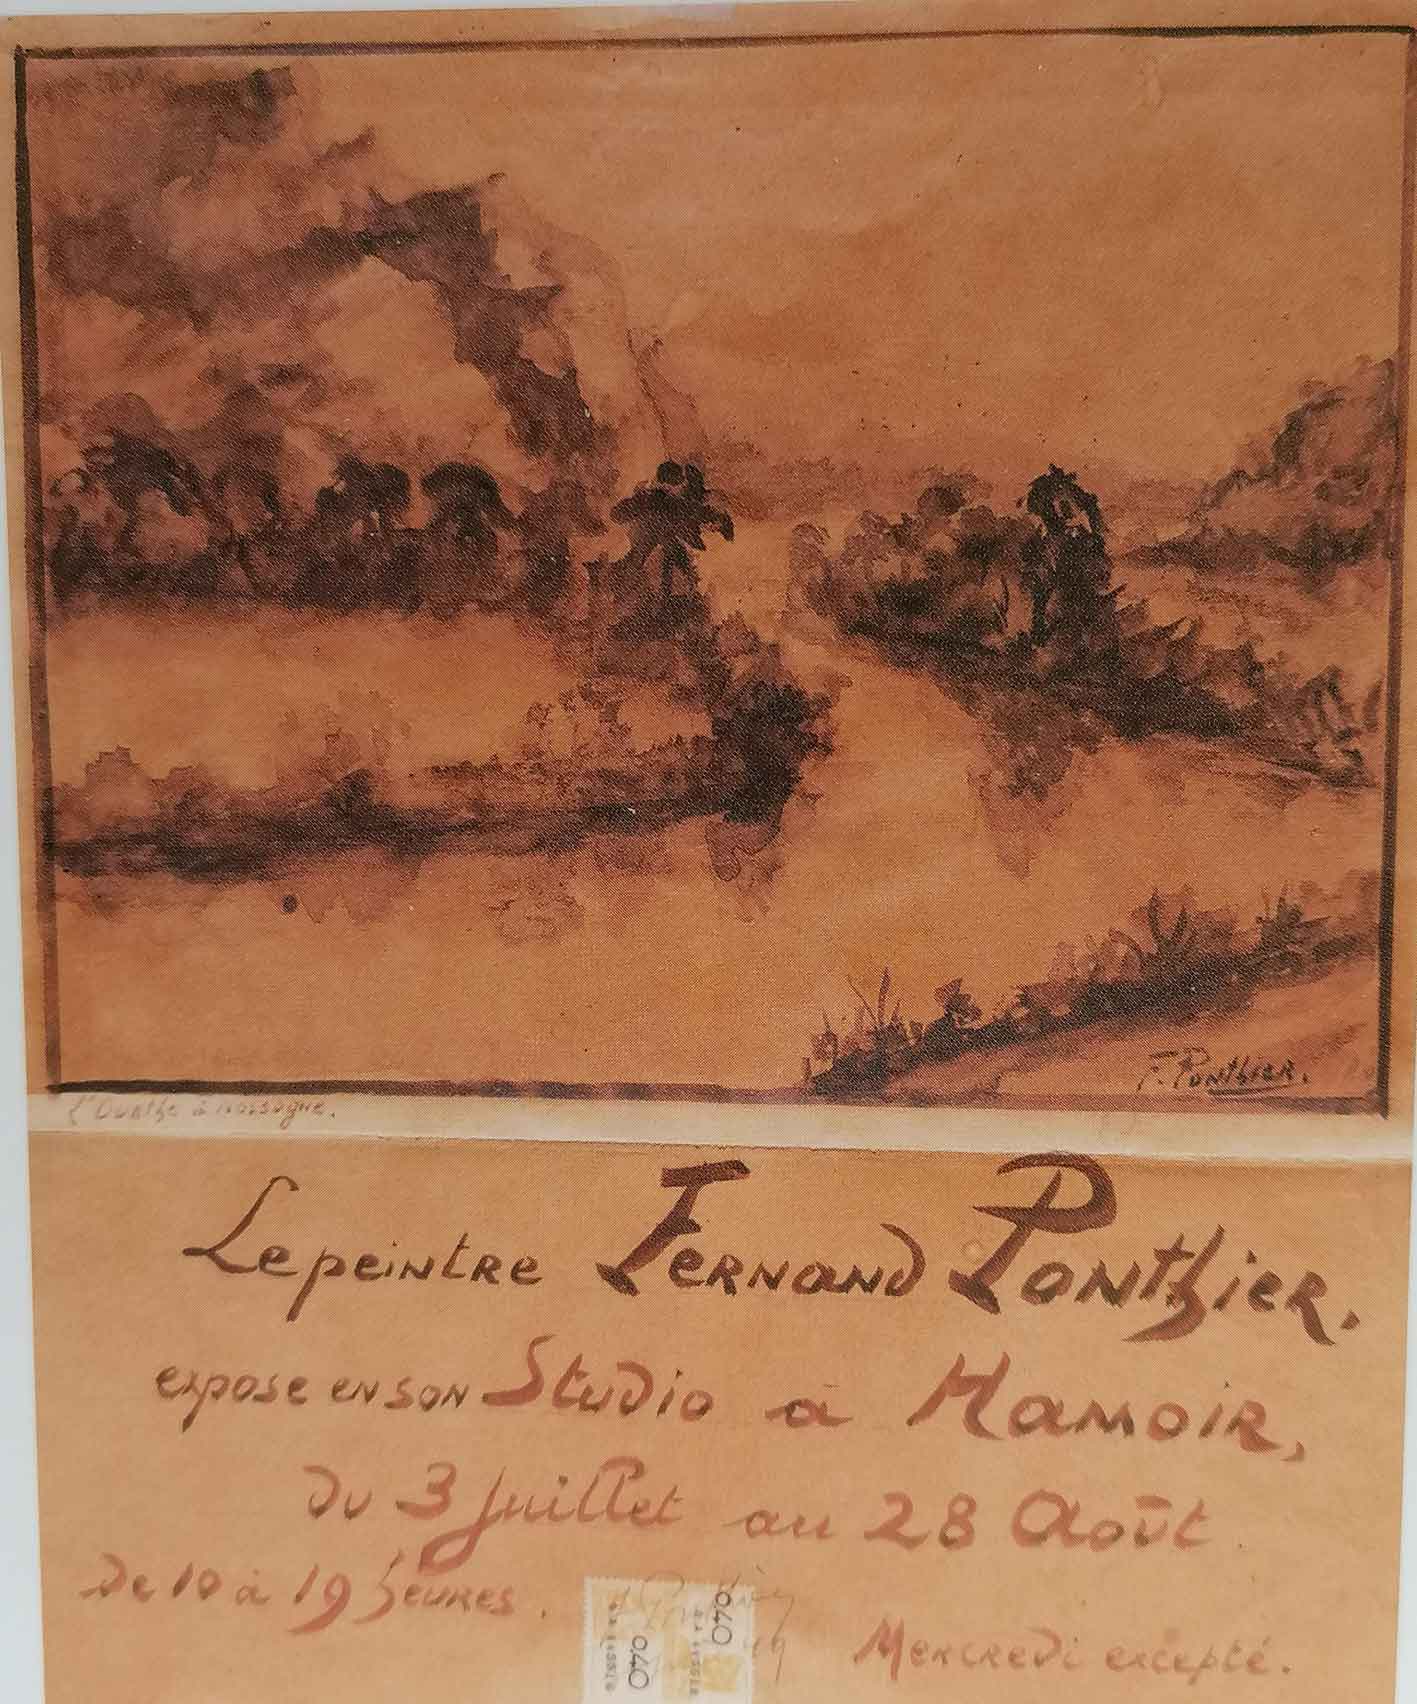 F. Ponthier.
l'Ourthe à
Le peintre Fernand Ponthier.
expose en son Studio à Hamoir,
du 3 Juillet au 28 Août
De 10 à 19 heures.
Mercredi excepté.
0,40
0,40